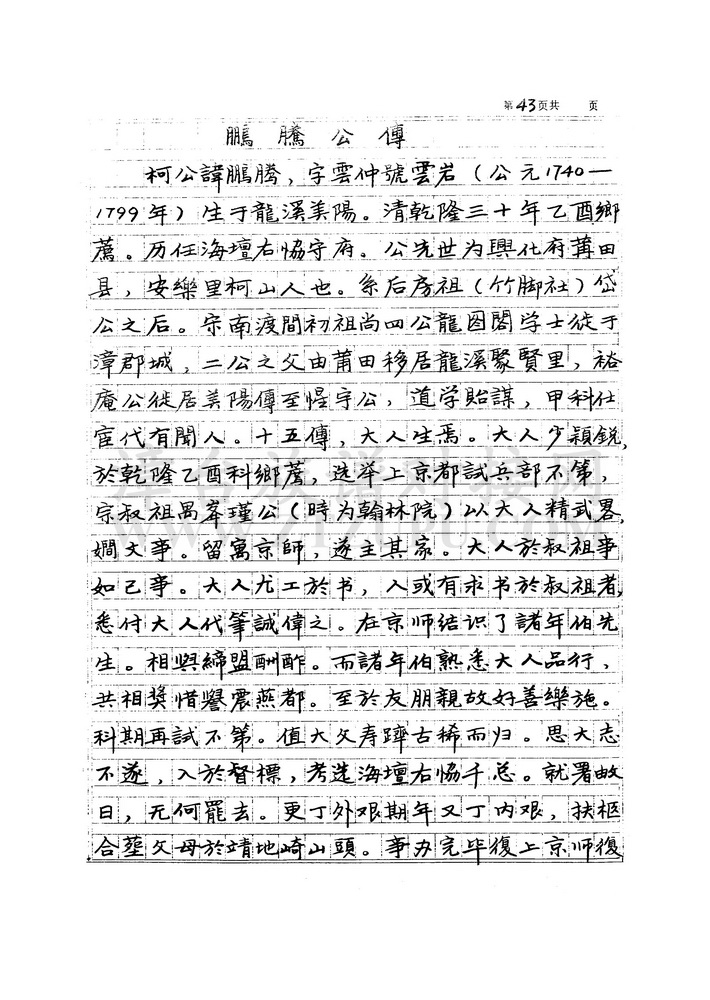 第43页共 页
鵬騰公傳
柯公諱鵬騰，字雲仲號雲岩（公元1740—
1799年）生于龍溪美陽。清乾隆三十年乙酉鄉
薦。历任海壇右恊守府。公先世为興化府莆田
县，安樂里柯山人也。系后房祖（竹脚社）岱
公之后。宋南渡間初祖尚四公龍圖閣学士徙于
漳郡城，二公之父由莆田移居龍溪聚賢里，裕
庵公徙居美陽傳至惺宇公，道学貽謀，甲科仕
宦代有聞人。十五傳，大人生焉。大人少穎銳，
於乾隆乙酉科鄉薦，选举上京都試兵部不第，
宗叔祖禺峯瑾公（時为翰林院）以大人精武畧，
嫺文亊。留寓京師，遂主其家。大人於叔祖亊
如己亊。大人尤工於书，人或有求书於叔祖者，
悉付大人代筆誠偉之。在京师结识了諸年伯先
生。相與締盟酬酢。而諸年伯熟悉大人品行，
共相奬惜譽震燕都。至於友朋親故好善樂施。
科期再試不第。值大父寿躋古稀而归。思大志
不遂，入於督標，考选海壇右恊千总。就署数
日，无何罷去。更丁外艰期年又丁内艰，扶柩
合塟父母於靖地崎山頭。亊办完毕復上京师復